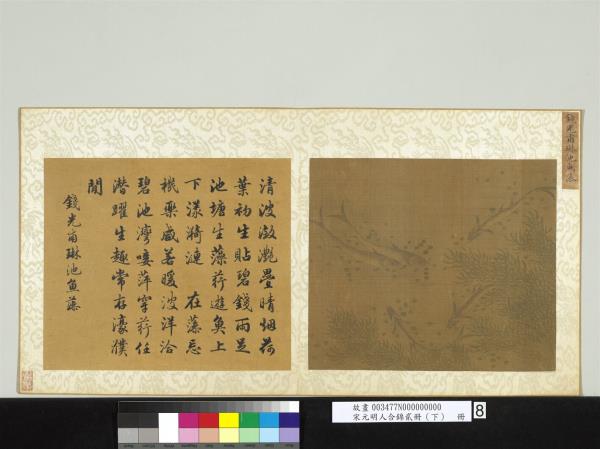 錢光甫琳池魚藻
清波瀲灩疊晴烟荷
葉初生貼碧錢雨足
池塘生藻荇遊魚上
下漾漪漣 在藻忘
機樂 暖波洋洽
碧池灣唼萍穿荇任
潛躍生趣常存濠濮
間
錢光甫琳池魚藻
故畫 003477N000000000
宋元明人合錦貳冊（下） 冊
8